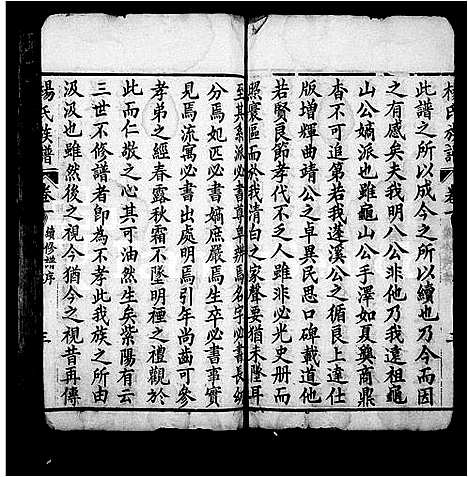 楊氏族譜 卷一 三
此譜之所以成今之所以續也乃今而因
之有感矣夫我明八公非他乃我遠祖龜
山公嫡派也雖龜山公手澤如夏彝商鼎
杳不可追第若我蓬溪公之循良上達仕
版增輝曲靖公之卓異民思口碑載道他
若賢良節孝代不乏人雖非必光史册而
照寰區而於我清白之家聲要猶未墜耳
至其系派必書尊卑辨焉名字必書長幼
分焉妃匹必書嫡庶嚴焉生卒必書事實
見焉流寓必書出處明焉引年尚齒可參
孝弟之經春露秋霜不墜明禋之禮觀於
此而仁敬之心可油然生矣紫陽有云
三世不修譜者即為不孝我族之所由
汲汲也雖然後之視今猶今之視昔再傳
楊氏族譜 卷一 續修譜序 三